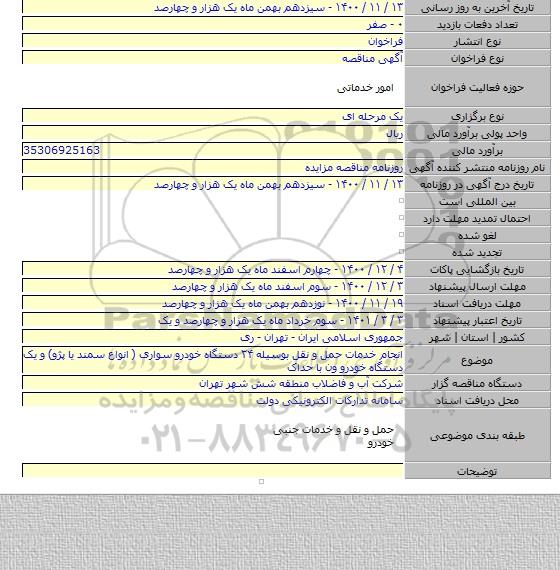 تاریخ آخرین به روز رسانی ۱۳ / ۱۱ / ۱۴۰۰ - سیزدهم بهمن ماه یک هزار و چهارصد
تعداد دفعات بازدید ۰ - صفر
نوع انتشار فراخوان
نوع فراخوان آگهی مناقصه
حوزه فعالیت فراخوان امور خدماتی
نوع برگزاری یک مرحله ای
واحد پولی برآورد مالی ریال
برآورد مالی 35306925163
نام روزنامه منتشر کننده آگهی روزنامه مناقصه مزایده
تاریخ درج آگهی در روزنامه ۱۳ / ۱۱ / ۱۴۰۰ - سیزدهم بهمن ماه یک هزار و چهارصد
بین المللی است
احتمال تمدید مهلت دارد
لغو شده
تجدید شده
تاریخ بازگشایی پاکات ۴ / ۱۲ / ۱۴۰۰ - چهارم اسفند ماه یک هزار و چهارصد
مهلت ارسال پیشنهاد ۳ / ۱۲ / ۱۴۰۰ - سوم اسفند ماه یک هزار و چهارصد
مهلت دریافت اسناد ۱۹ / ۱۱ / ۱۴۰۰ - نوزدهم بهمن ماه یک هزار و چهارصد
تاریخ اعتبار پیشنهاد ۳ / ۳ / ۱۴۰۱ - سوم خرداد ماه یک هزار و چهارصد و یک
کشور | استان | شهر جمهوری اسلامی ایران - تهران - ری
موضوع انجام خدمات حمل و نقل بوسیله ۲۴ دستگاه خودرو سواری ( انواع سمند یا پژو) و یک
دستگاه خودرو ون با حداک
دستگاه مناقصه گزار شرکت آب و فاضلاب منطقه شش شهر تهران
محل دریافت اسناد سامانه تدارکات الکترونیکی دولت
طبقه بندی موضوعی حمل و نقل و خدمات جنبی
خودرو
توضیحات
ParsNamadData
۰۲۱-۸۸۳۴۹۶۷۰-۵